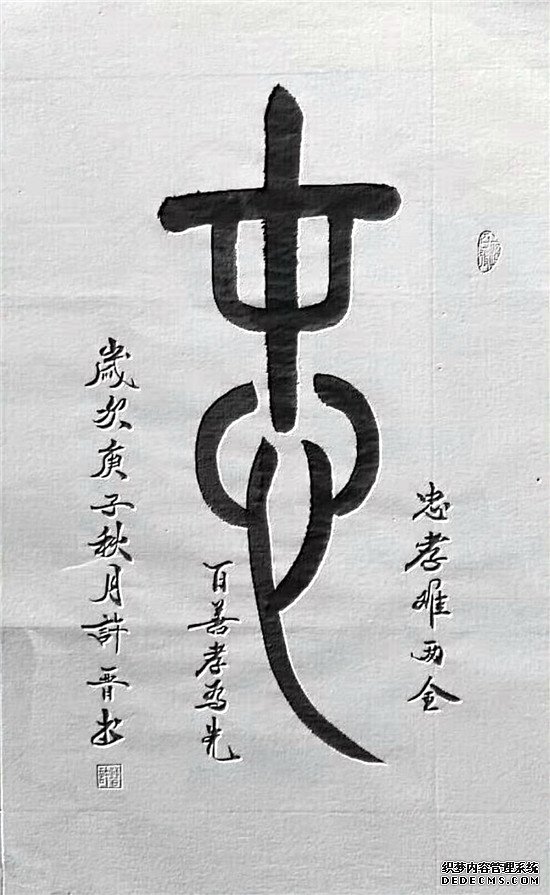 忠
忠孝难两全
百善孝为先
歲次庚子秋月許晋书
织梦内容管理系统
DEDECMS.COM